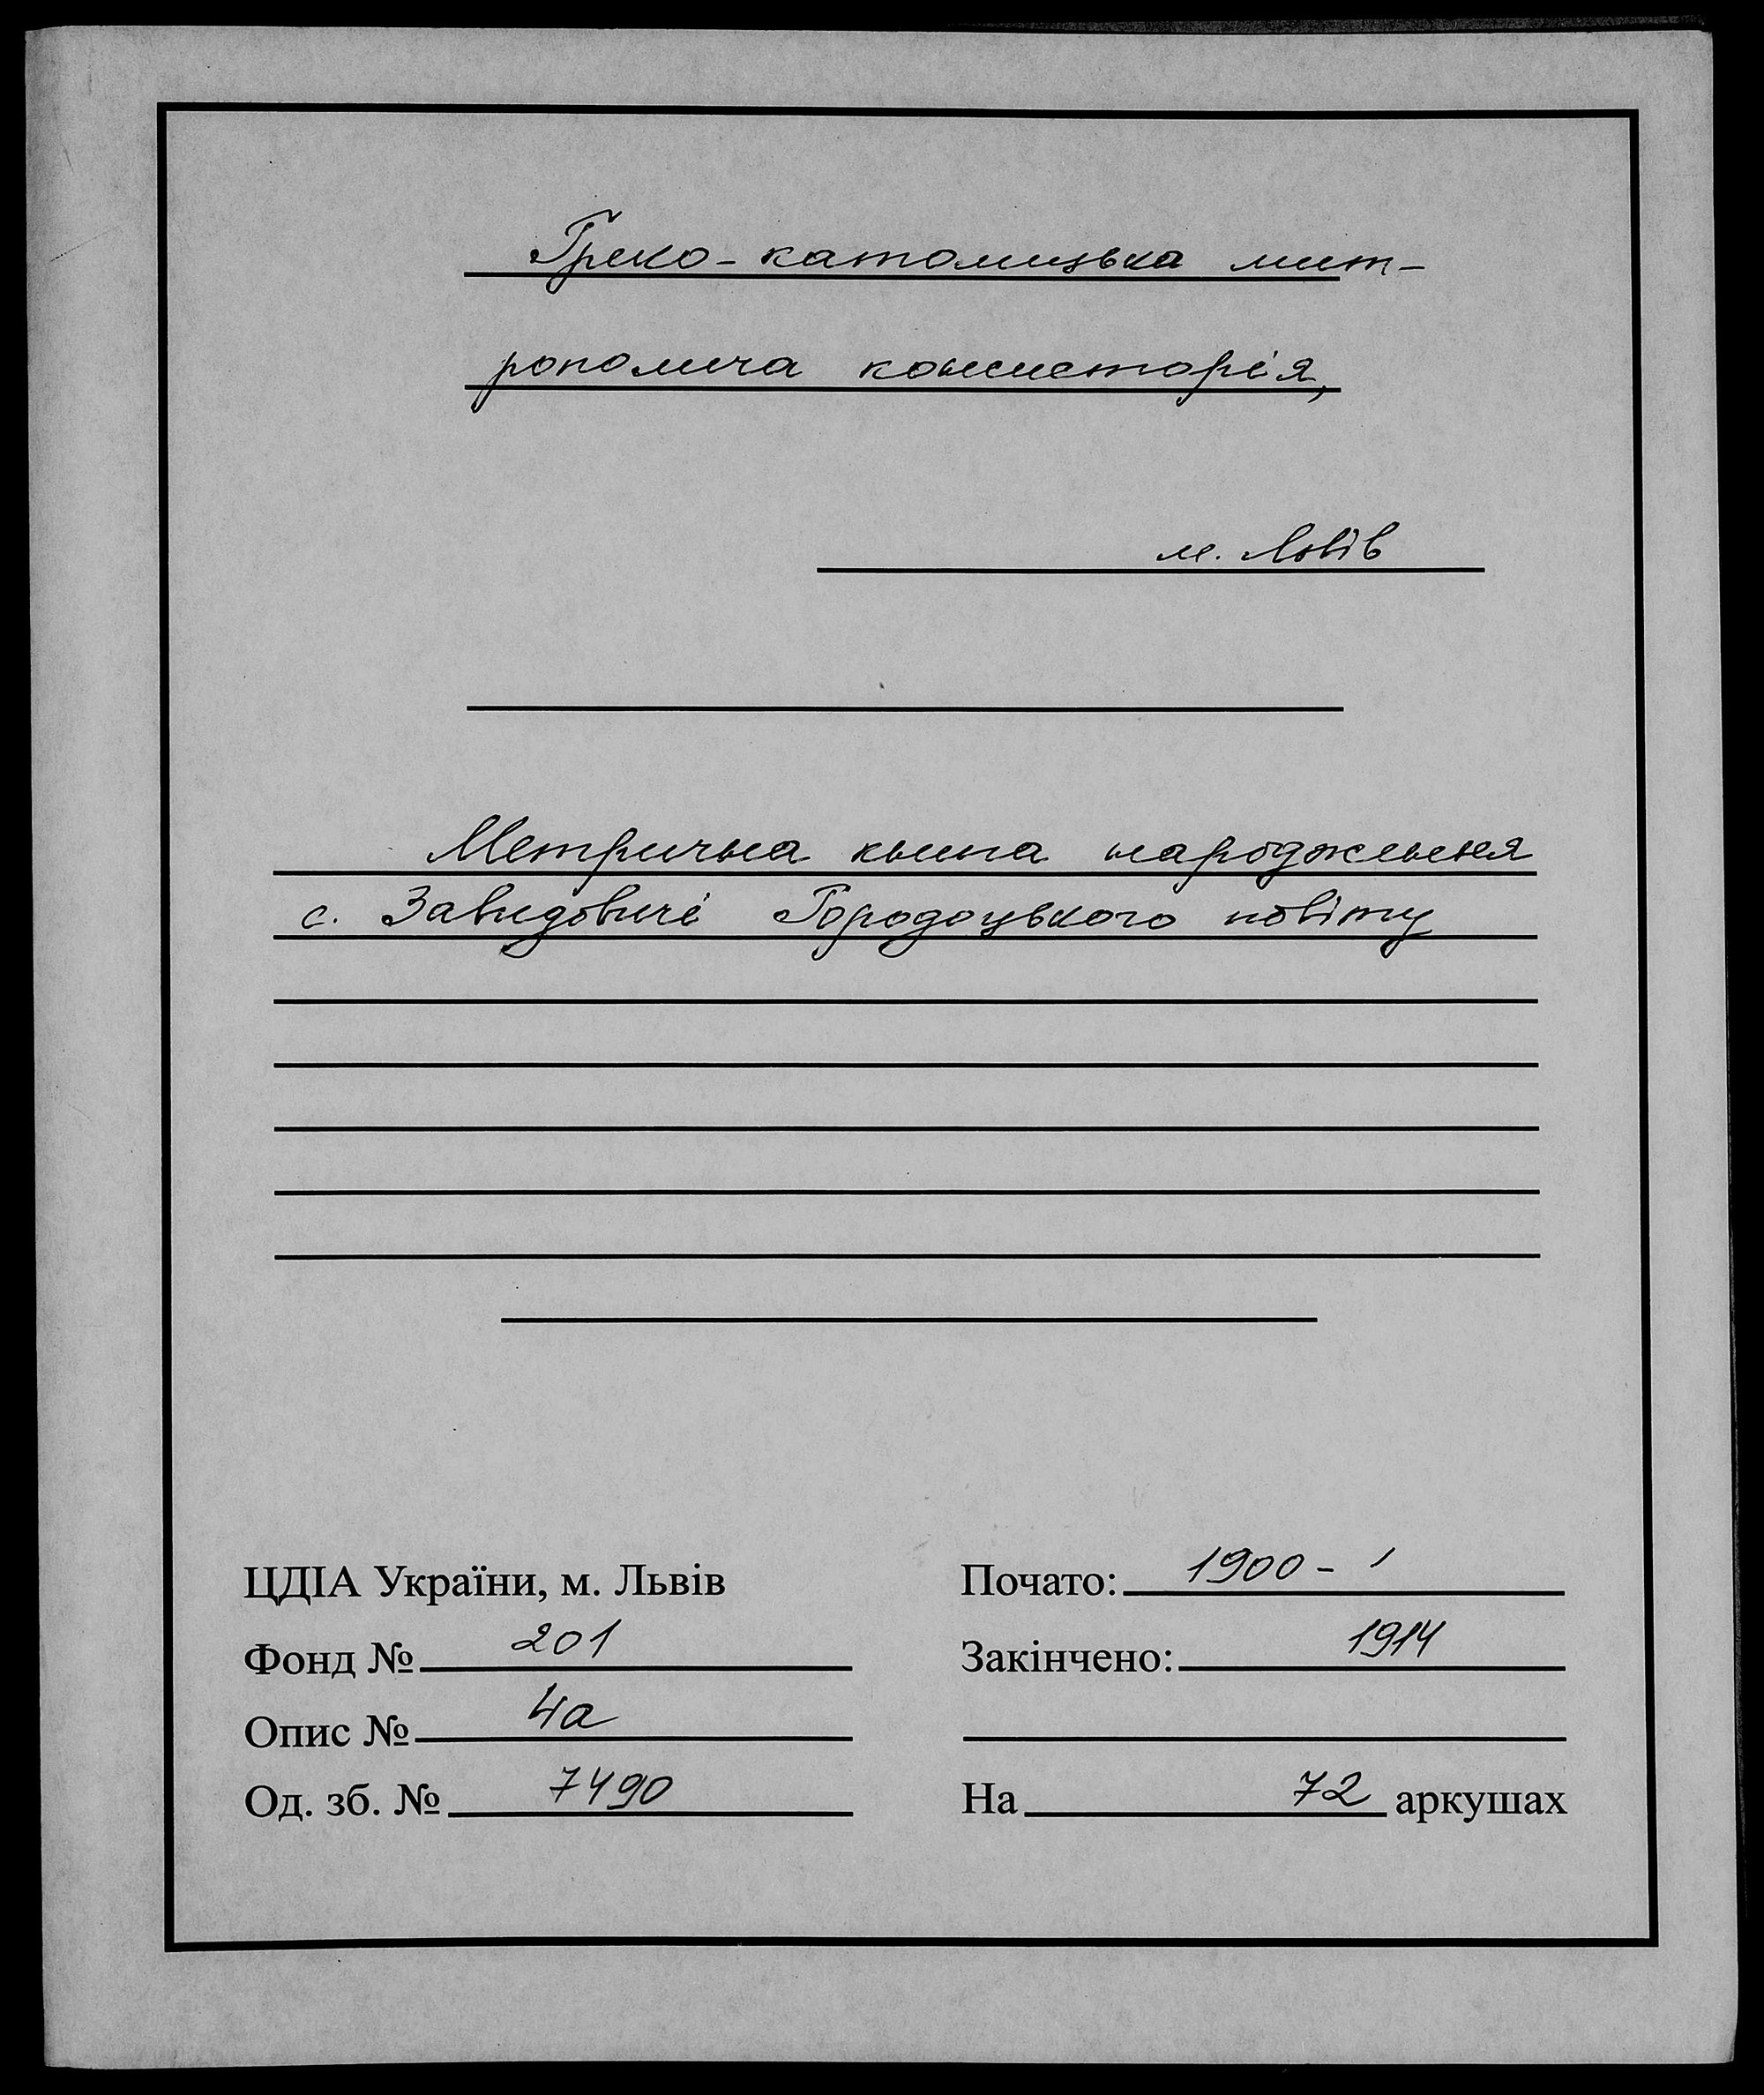 Греко-католицька мит-
рополича консисторія,
м. Львів
Метрична книга народження
с. Завидовичі Городоцького повіту
ЦДІА України, м. Львів
Фонд № 201
Опис № 4а
Од. зб. № 7490
Почато: 1900 -
Закінчено: 1914
На 72 аркушах